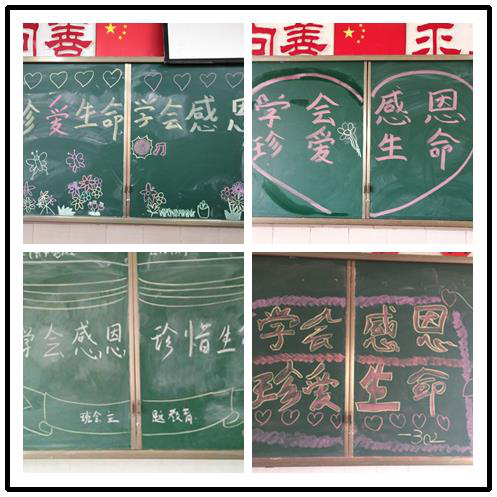 向善
珍爱生命学会感恩
向善
学会感恩
珍爱生命
学会感恩珍惜生命
班会主题教育
学会感恩
珍爱生命
-302